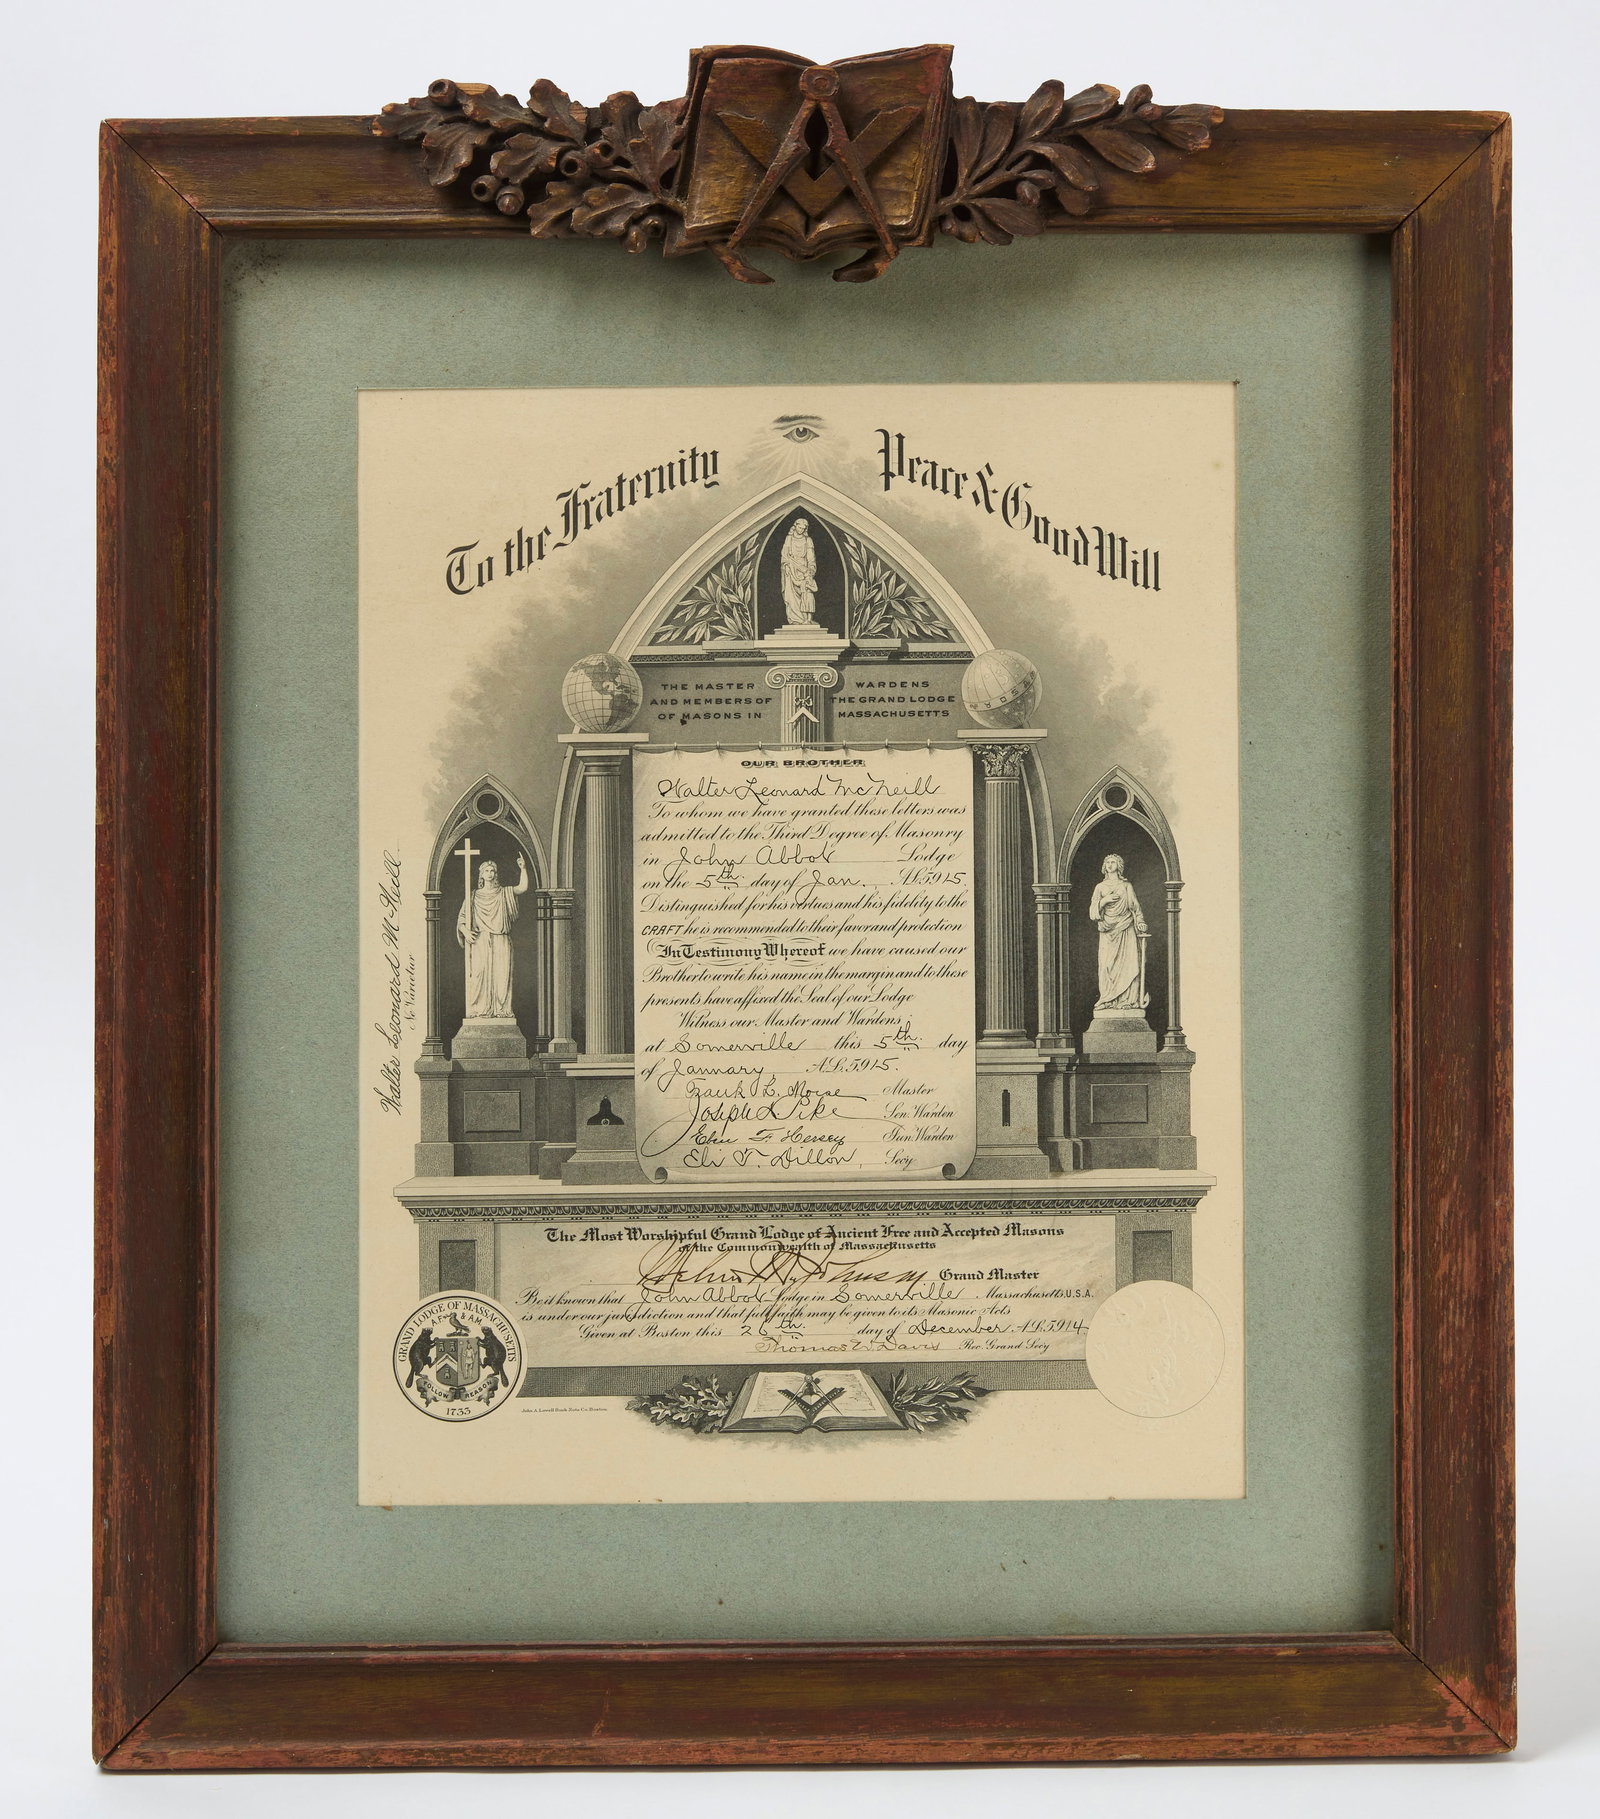 To the Fraternity Peace & Good Will
THE MASTER WARDENS
AND MEMBERS OF THE GRAND LODGE
OF MASONS IN MASSACHUSETTS
OUR BROTHER
Walter Leonard McNeill
To whom we have granted these letters was
admitted to the Third Degree of Masonry
in John Abbot Lodge
on the 5th day of Jan. A.L. 5915.
Distinguished for his virtues and his fidelity to the
CRAFT he is recommended to their favor and protection
In Testimony Whereof we have caused our
Brother to write his name in the margin and to these
presents have affixed the Seal of our Lodge
Witness our Master and Wardens
at Somerville this 5th day
of January, A.L. 5915.
Frank L. Morse Master
Joseph L. Pike Sen. Warden
F. Hersey Jun. Warden
Eli T. Dillon, Secy
Walter Leonard McNeill
Ne Varietur
The Most Worshipful Grand Lodge of Ancient Free and Accepted Masons
of the Commonwealth of Massachusetts
Melvin M. Johnson Grand Master
Be it known that John Abbot Lodge in Somerville Massachusetts, U.S.A.
is under our jurisdiction and that full faith may be given to its Masonic Acts
Given at Boston this 26th day of December A.L. 5914
Thomas W. Davis Rec. Grand Secy
GRAND LODGE OF MASSACHUSETTS
A.F. & A.M.
FOLLOW REASON
1733
John A Lowell Bank Note Co. Boston